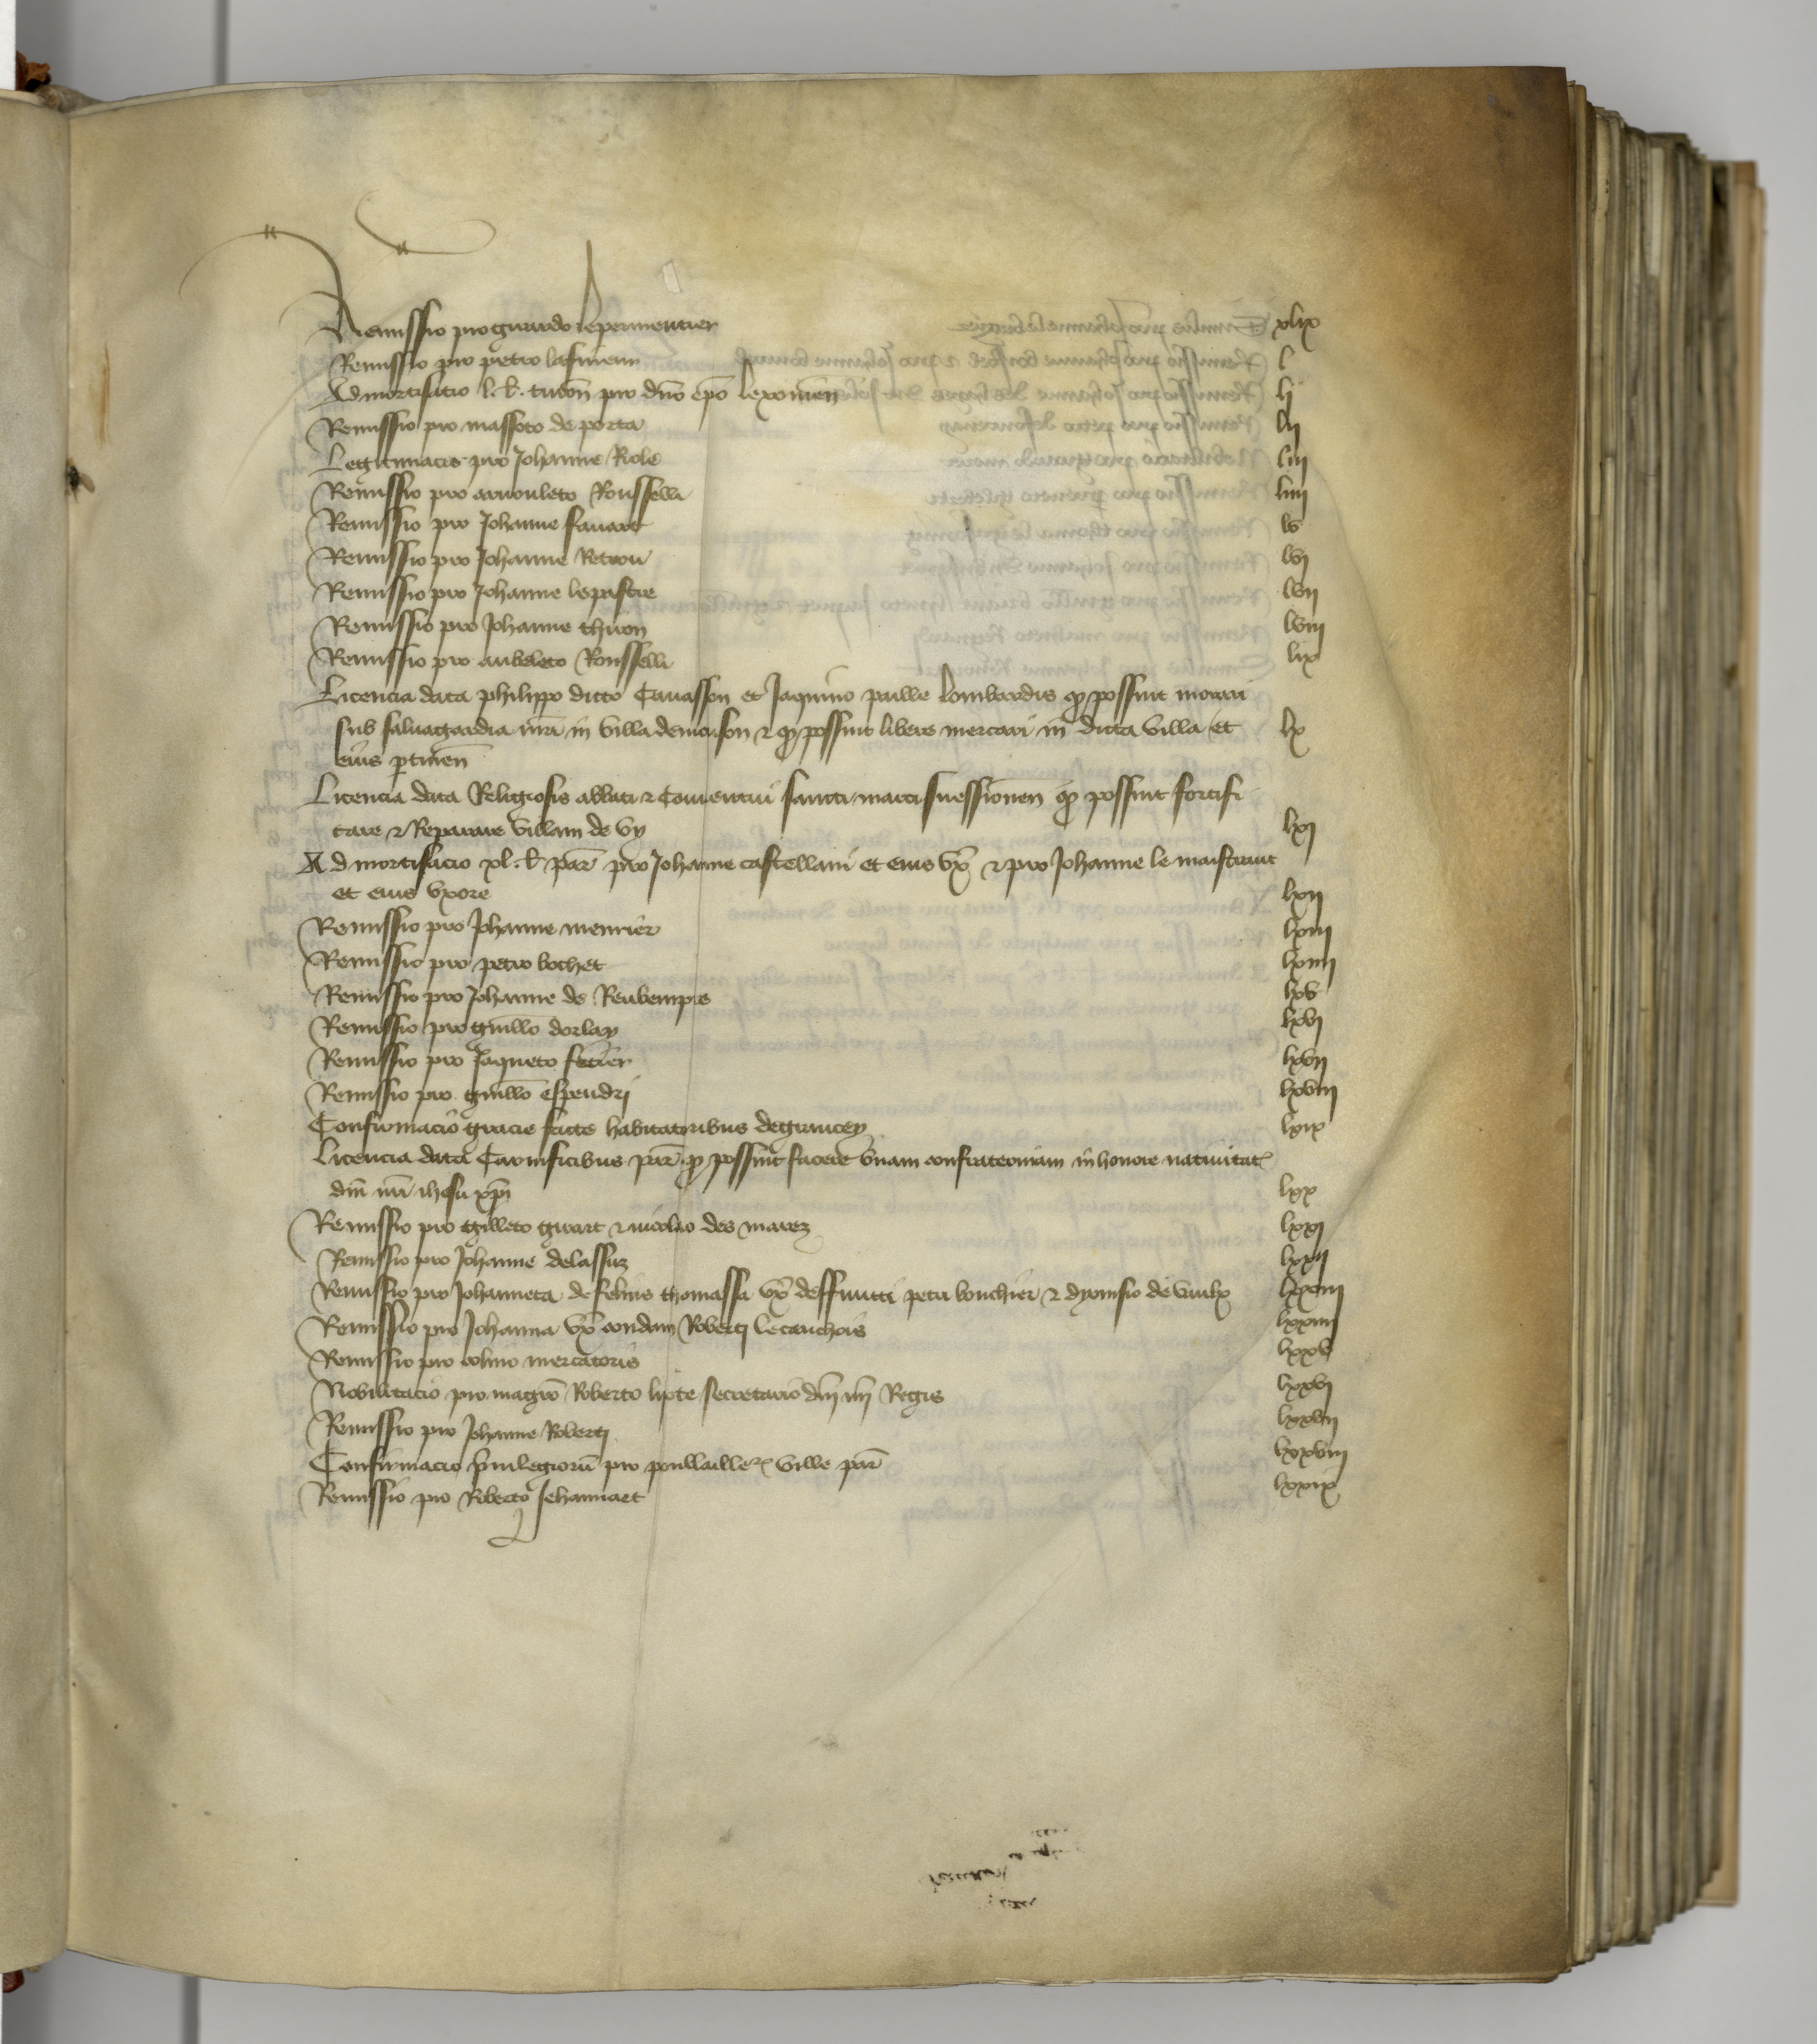 Remissio pro guardo lepermentier xlix
Remissio pro petro lasnierii l
Admortisacio l. l. turoñ pro dño epo lexovieñ li
Remissio pro massoto de porta lii
Legitimacio pro Johanne Role liii
Remissio pro arnouleto Rousselli liiii
Remissio pro Johanne favart lv
Remissio pro Johanne Retrou lvi
Remissio pro Johanne lepistre lvii
Remissio pro Johanne thuon lviii
Remissio pro aubeleto Rousselli lix
Licencia data philippo dicto Cavasson et Jaquino lombardis qd possint morari
sub salvagardia nrã in villa & qd possint libere mercari in dicta villa et lx
eius ptineñ
Licencia data Religiosis abbati & Conventui sancti marci suessioneñ qd possint fortifi
care & Reparare villam de vy lxi
Admortisacio xl. l. pañ pro Johanne castellani et eius vx & pro Johanne le
et eius vxore lxii
Remissio pro Johanne mennier lxiii
Remissio pro petro bochet lxiiii
Remissio pro Johanne de Reubempre lxv
Remissio pro guillo dorlay lxvi
Remissio pro Jaqueto lxvii
Remissio pro guillo espendri lxviii
Confirmacio gracie facte habitatoribus degrancey lxix
Licencia data Carnificibus par qd possint facere vnam confraterniam in honore nativitat
dni nri ihesu xpi lxx
Remissio pro gilleto girart & nicolao des marez lxxi
Remissio pro Johanne delassuz lxxii
Remissio pro Johanneta de thomassa vx deffuncti petri bouchier & dyonisio de vaulx lxxiii
Remissio pro Johanna vx condam Roberti lecauchois lxxiiii
Remissio pro colino mercatoris lxxv
Nobilitacio pro magro Roberto lipte secretario dni nri Regis lxxvi
Remissio pro Johanne Roberti lxxvii
Confirmacio privilegiorũ pro poullaille ville par lxxviii
Remissio pro Roberto Jehannart lxxix